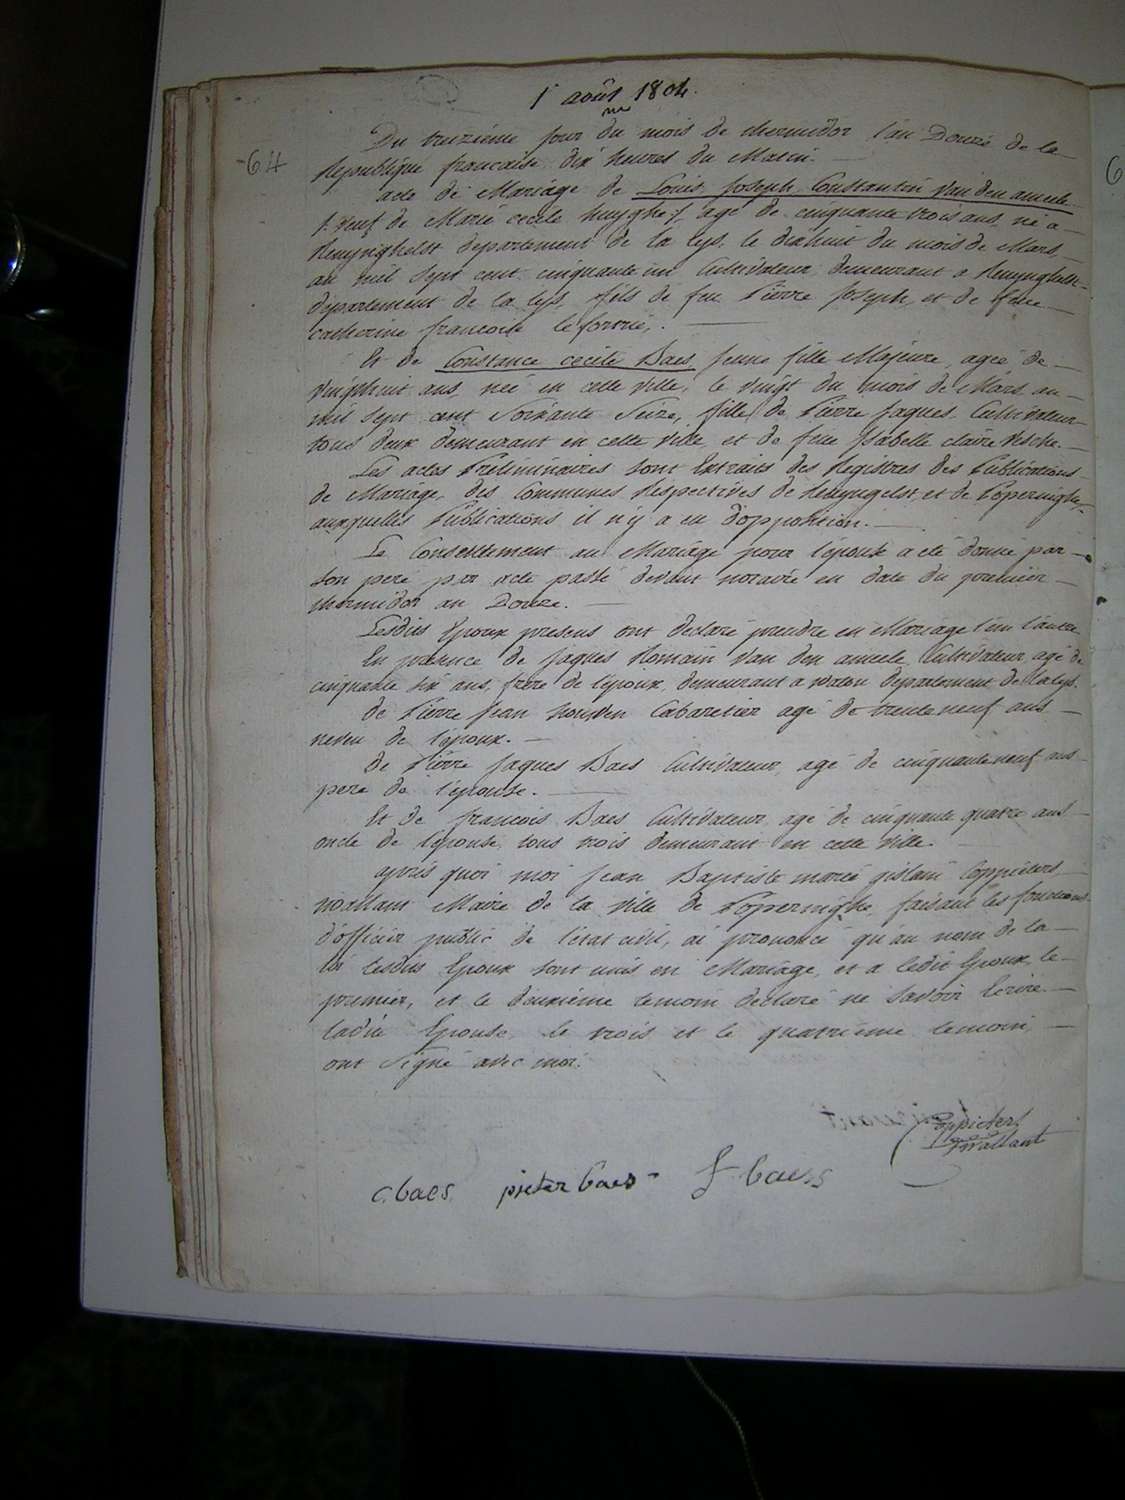 1 août 1804.
64
Du treizième jour du mois de thermidor l'an Douze de la
Republique francaise dix heures du Matin.
acte de Mariage de Louis Joseph Constantin Van den ameele
veuf de Marie cecile huyghe agé de cinquante trois ans né a
Renynghelst departement de la Lys le dixhuit du mois de Mars
an mil sept cent cinquante un Cultivateur demeurant a Renynghelst
departement de la Lys, fils de feu Pierre Joseph et de feue
catherine francoise le fortrie,
Et de Constance cecile Baes Jeune fille Majeure agée de
vingthuit ans née en cette ville, le vingt du mois de Mars an
mil sept cent soixante seize, fille de Pierre Jaques Cultivateur
tous deux demeurant en cette ville et de feue Isabelle claire
Les actes Préliminaires sont Extraits des Registres des Publications
de Mariage, des Communes Respectives de Renyngelst et de Poperinghe,
auxquelles Publications il n'y a eu d'opposition.
Le Consentement au Mariage pour l'épouse a eté donné par
son pere par acte passé devant notaire en date du premier
thermidor an Douze.
Lesdits Epoux presens ont declaré prendre en Mariage l'un l'autre
En presence de Jaques Romain Van den ameele Cultivateur agé de
cinquante six ans, frere de l'epoux, demeurant a watou departement de la Lys.
de Pierre Jean Cabaretier agé de trente neuf ans
neveu de l'époux.
de Pierre Jaques Baes Cultivateur, agé de cinquante neuf ans
pere de l'épouse.
Et de francois Baes Cultivateur agé de cinquante quatre ans
oncle de l'épouse, tous trois demeurant en cette ville.
après quoi moi Jean Baptiste marie gislain Coppieters
wallant Maire de la ville de Poperinghe, faisant les fonctions
d'officier public de l'etat civil, ai prononcé qu'au nom de la
loi lesdits Epoux sont unis en Mariage, et a ledit Epoux, le
premier, et le deuxième temoin declaré ne savoir Ecrire
ladite Epouse, le trois et le quatrieme temoin
ont signé avec moi.
Coppieters
wallant
c. baes pieter baes f baess